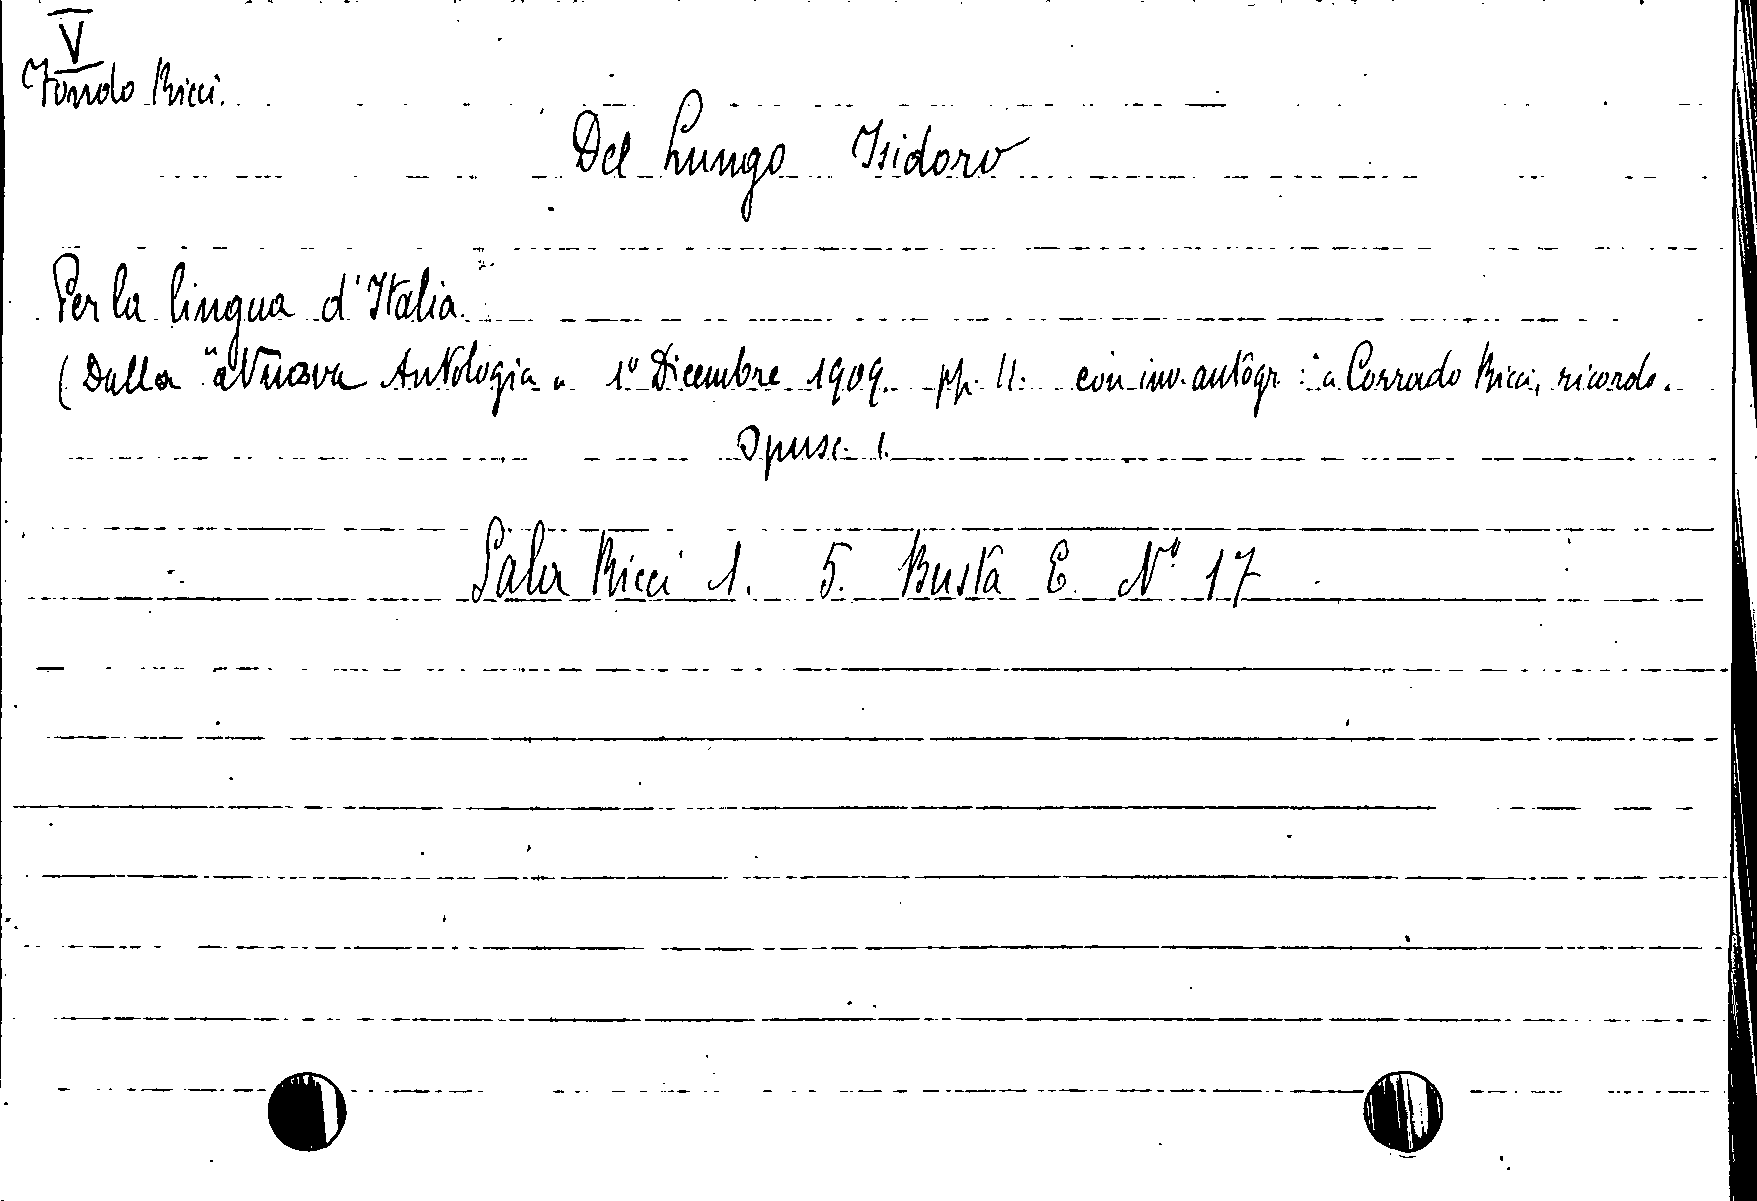 V
Fondo Ricci.
Del Lungo Isidoro
Per la lingua d'Italia.
(Dalla "Nuova Antologia" 1° Dicembre 1909. pp. 11. con inv. autogr: a Corrado Ricci, ricordo.
Opusc. 1.
Sala Ricci 1. 5. Busta E. N° 17